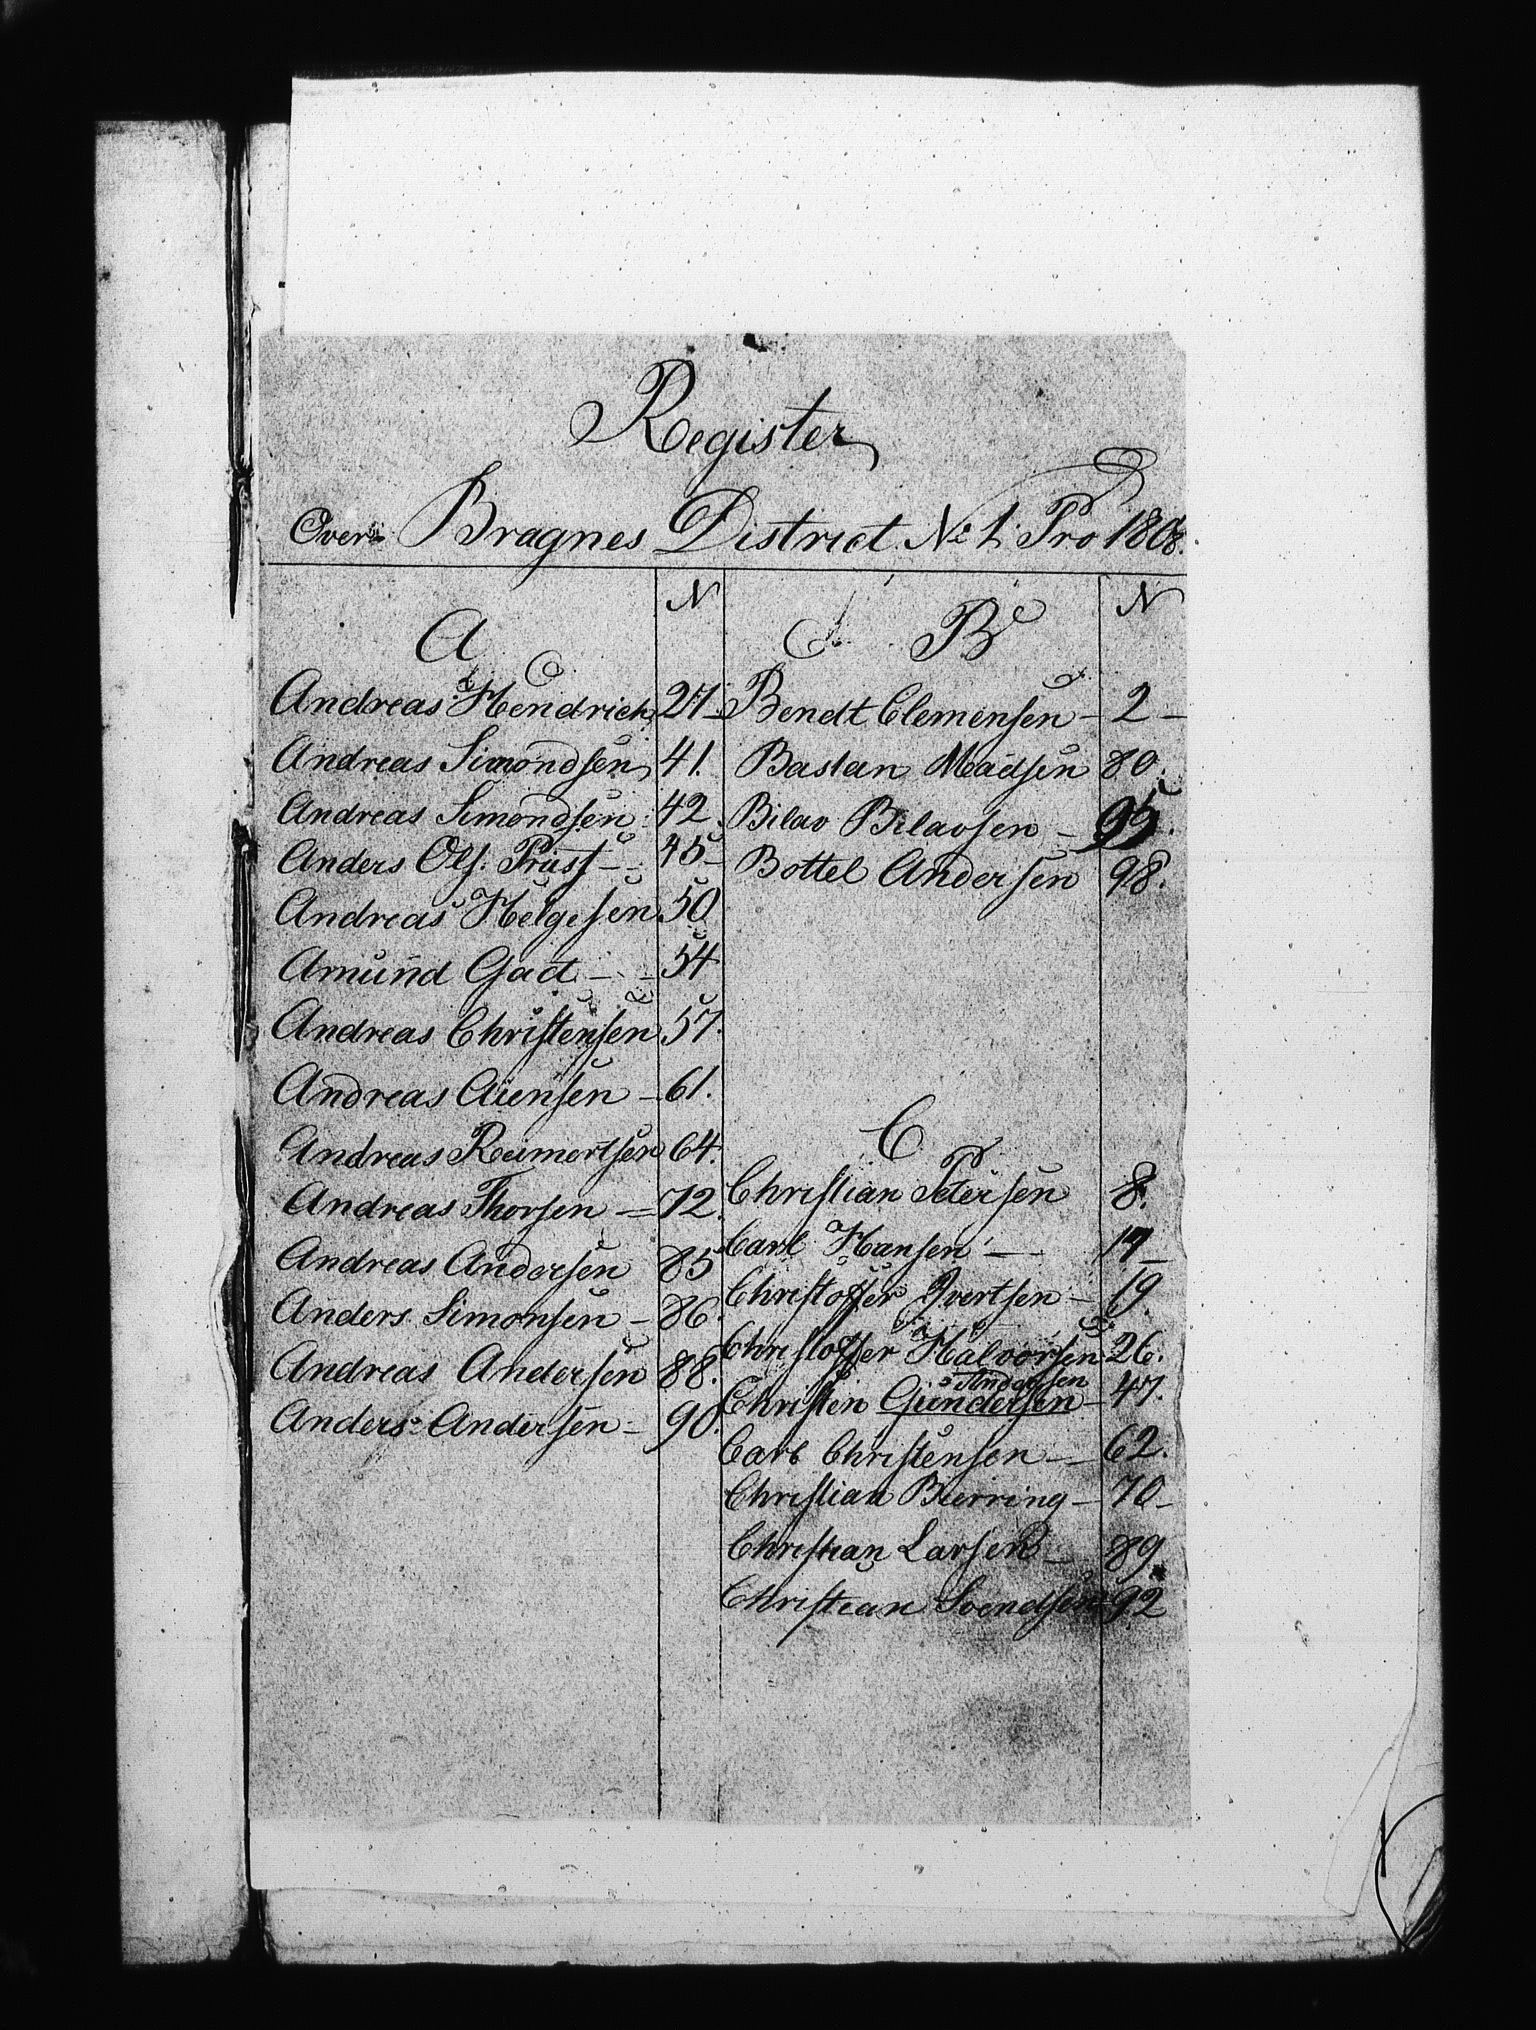 Register
Over Bragnes District No 1. Pro 1808.
N
A
Andreas Hendrich 27
Andreas Simondsen 41.
Andreas Simondsen 42
Anders Ols. Prüst 45
Andreas Helgesen 50
Amünd Gad 54
Andreas Christensen 57.
Andreas 61.
Andreas Reimertsen 64.
Andreas Thorsen 72.
Andreas Andersen 85
Anders Simonsen 86.
Andreas Andersen 88.
Anders Andersen 90.
N
B
Bendt Clemensen 2
Bastan Madsen 80.
Bilav Bilavsen 95.
Bottel Andersen 98.
C
Christian Petersen 8.
Carl Hansen 17
Christoffer Ivertsen 19.
Christoffer Halvorsen 26.
Andersen
Christen Gündersen 47.
Carl Christensen 62.
Christian Bierring 70
Christian Larsen 89
Christian Svendsen 92